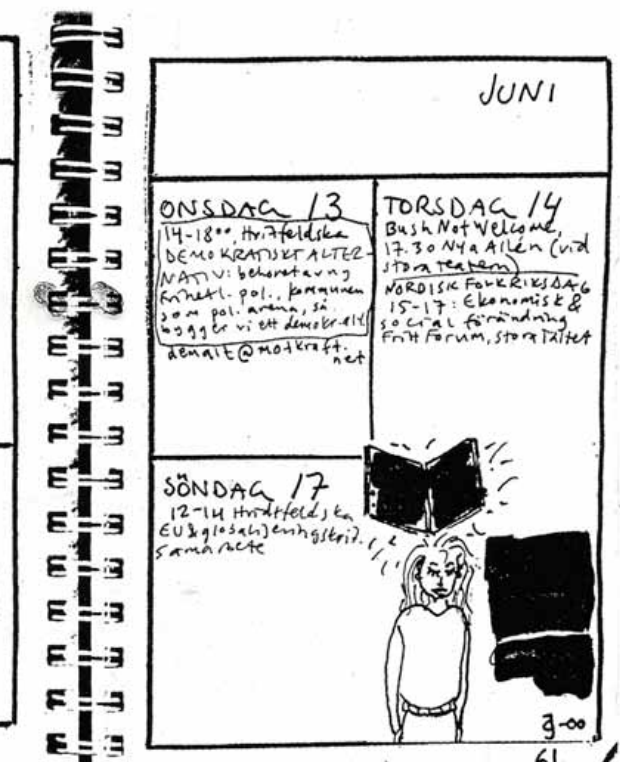 JUNI
ONSDAG 13
14-18⁰⁰, Hvitfeldska
DEMOKRATISKT ALTER-
NATIV: behovet av ny
frihetl. pol., kommunen
som pol. arena, så
bygger vi ett demokr. alt.
demalt@motkraft.
net
TORSDAG 14
Bush Not Welcome,
17.30 Nya Allén (vid
stora teatern)
NORDISK FOLKRIKSDAG
15-17: Ekonomisk &
social förändring
Fritt Forum, stora tältet
SÖNDAG 17
12-14 Hvidtfeldska
EU & globaliseringskrit.
samarbete
-00
61